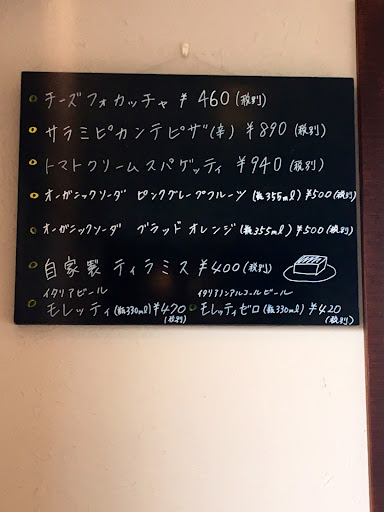 チーズフォカッチャ ¥460(税別)
サラミピカンテピザ(辛) ¥890(税別)
トマトクリームスパゲッティ ¥940(税別)
オーガニックソーダ ピンクグレープフルーツ(瓶355ml)¥500(税別)
オーガニックソーダ ブラッドオレンジ(瓶355ml)¥500(税別)
自家製ティラミス¥400(税別)
イタリアビール
モレッティ(瓶330ml)¥470(税別)
イタリアノンアルコールビール
モレッティゼロ(瓶330ml)¥420(税別)